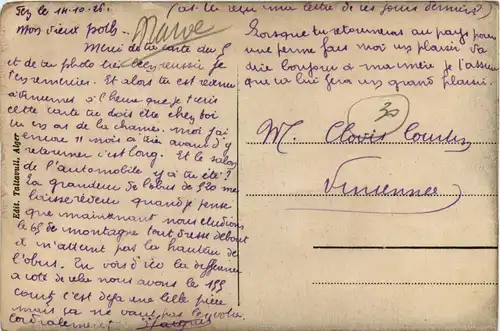 Fez le 14.10.26. (as tu reçu une lettre de ces jours derniers)
Mon vieux
Maroc
Merci de ta carte du 5
et de ta photo très bien réussie je
t'en remercie. Et alors tu est revenu
à Vincennes à l'heure que je t'écris
cette carte tu dois être chez toi
tu as de la chance. moi j'ai
encore 11 mois à tirer avant d'y
retourner c'est long. Et le salon
de l'automobile y a tu été ?
La grandeur de l'obus de 520 me
laisse rêveur quand je pense
que maintenant nous étudions
le 65 de montagne tout dressé debout
il n'atteint pas la hauteur de
l'obus. Tu vois d'ici la différence
à côté de cela nous avons le 155
court c'est déjà une belle pièce
mais ça ne vaut pas le
Cordialement
Lorsque tu retourneras au pays pour
une perme fais moi un plaisir va
dire bonjour à ma mère je t'assure
que ça lui fera un grand plaisir.
30
M. Clovis
Vincennes
Edit. Taltavull, Alger